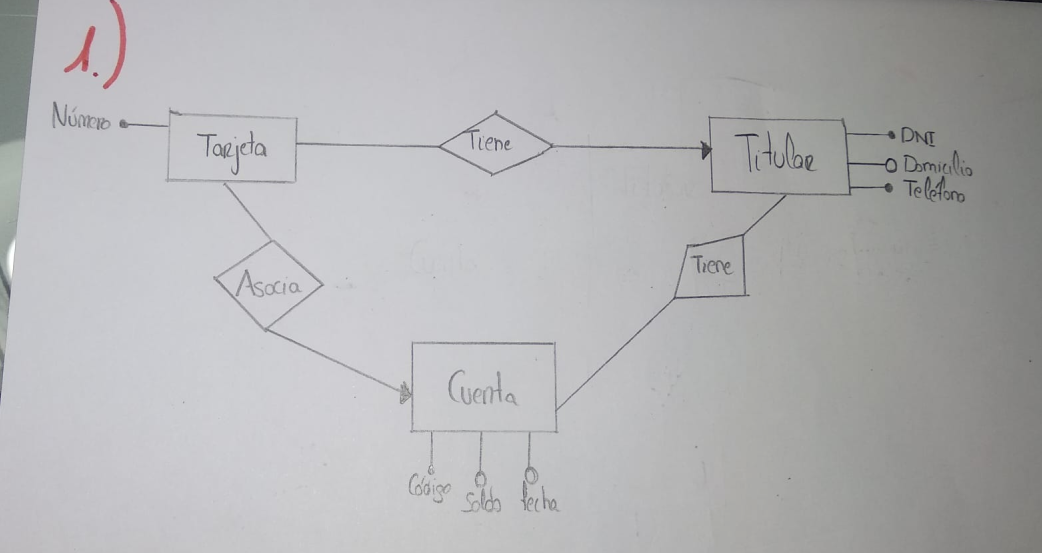 1.)
Número
Tarjeta
Tiene
Titular
DNI
Domicilio
Teléfono
Asocia
Tiene
Cuenta
Código
Saldo
fecha